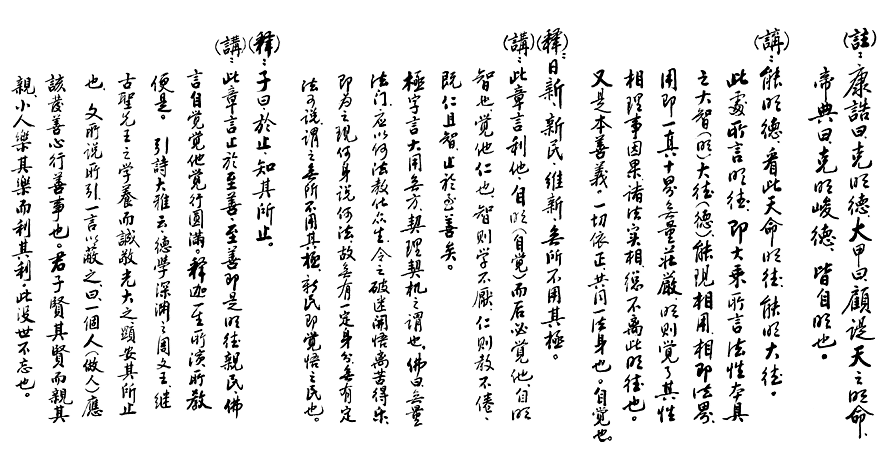 (註)：康誥曰克明德、大甲曰顧諟天之明命、
帝典曰克明峻德、皆自明也。
(講)：能明德、看此天命明德、能明大德。
此處所言明德、即大乘所言法性本具
之大智(明)大德(德)、能現相用、相即法界、
用即一真十界、無量莊嚴、明則覺了其性
相理事因果諸法實相、總不離此明德也。
又是本善義、一切依正共同一法身也。自覺也。
(釋)：日新、新民、維新、無所不用其極。
(講)：此章言利他、自明(自覺)而后必覺他、自明
智也、覺他仁也、智則学不厭、仁則教不倦、
既仁且智、止於至善矣。
極字言大用無方、契理契机之謂也。佛曰無量
法门、应以何法教化众生、令之破迷開悟离苦得乐、
即為之現何身、说何法、故無有一定身分、無有定
法可说、謂之無所不用其極、新民即覺悟之民也。
(釋)：子曰於止、知其所止。
(講)：此章言止於至善、至善即是明德親民、佛
言自覺覺他覺行圓滿。釋迦一生所演所教
便是。引詩大雅云、德学深渊之周文王、継
古聖先王之学養而誠敬光大之、顕安其所止
也、文所说所引、一言以蔽之、曰、一個人(做人)應
該發善心行善事也。君子賢其賢而親其
親、小人樂其樂而利其利、此没世不忘也。